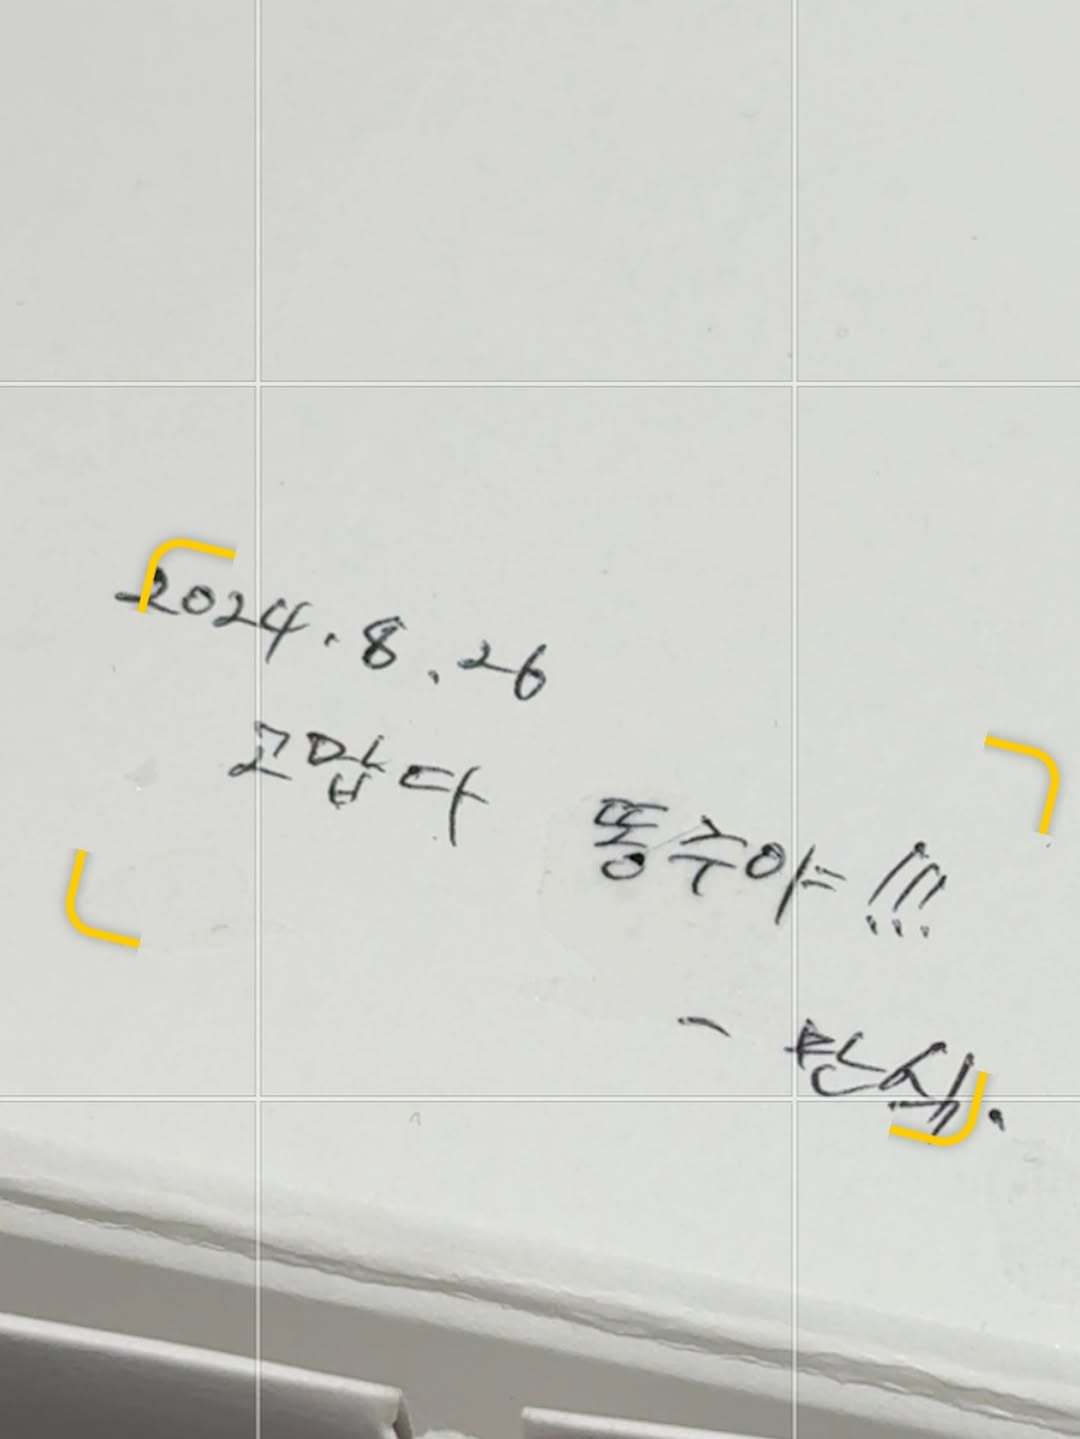 2024. 8. 26
고맙다 똥주야!!!
- 찬식.